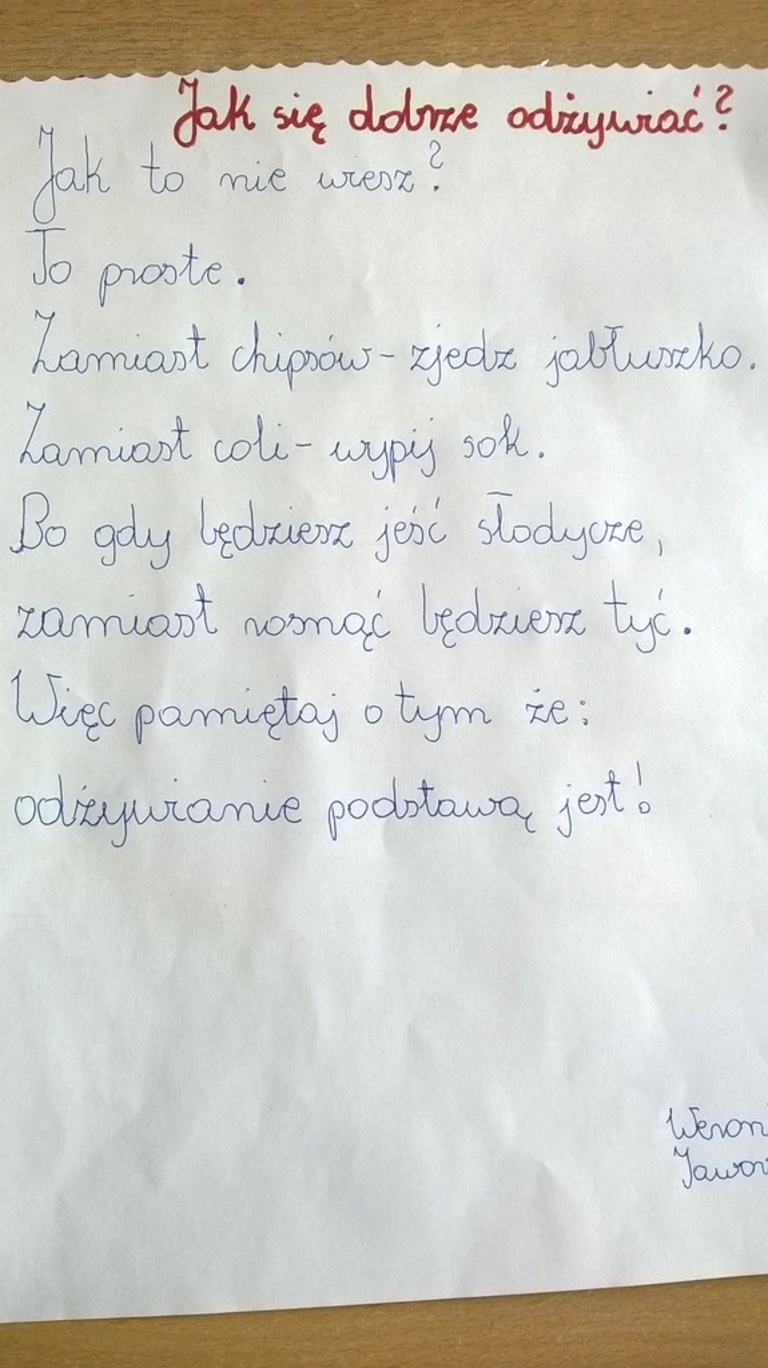 Jak się dobrze odżywiać?
Jak to nie wiesz?
To proste.
Zamiast chipsów - zjedz jabłuszko.
Zamiast coli - wypij sok.
Bo gdy będziesz jeść słodycze,
zamiast rosnąć będziesz tyć.
Więc pamiętaj o tym że:
odżywianie podstawą jest!